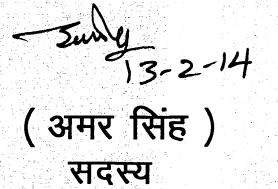 13-2-14
( अमर सिंह )
सदस्य